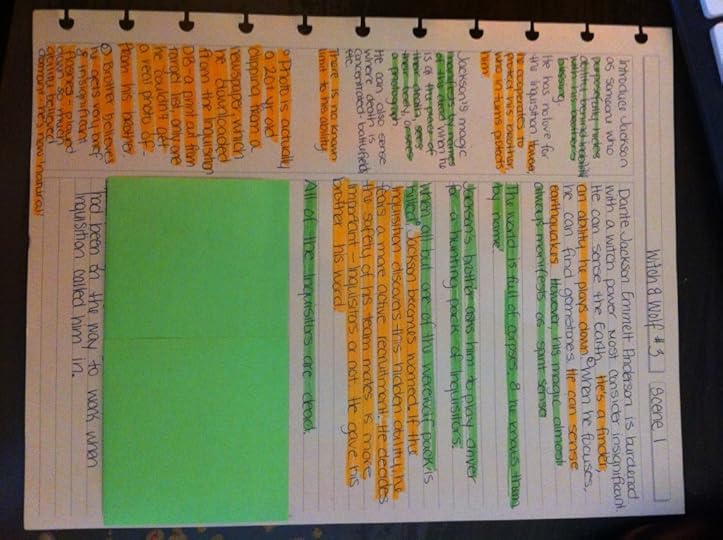 Witch & Wolf #3 Scene 1
Introduce Jackson
as someone who
purposefully hides
behind
with his brothers
blessing.
He has no love for
the Inquisition. However,
he cooperates to
protect his brother,
who in turns protects
him
Jackson's magic
manifests by names
of the dead when he
is at the place of
their death, sees
a photograph
He can also sense
where death is
concentrated - battlefields
etc
There is no known
limit to his ability
Photo is actually
a 20+ yr old
clipping from a
newspaper, which
he downloaded
from the Inquisition
DB a print out from
target list anyone
he couldn't get
a real photo of
from his brother
Brother believes
he gets very brief
& insignificant
flashes -
quality believed
Dante Jackson Emmett Anderson is burdened
with a witch power most consider insignificant.
He can sense the Earth. He's a finder,
an ability he plays down. When he focuses,
he can find gemstones. He can sense
earthquakes. However, his magic almost
always manifests as spirit sense
The world is full of corpses, & he knows them
by name.
Jackson's brother asks him to play driver
for a hunting pack of Inquisitors.
When all but one of the werewolf pack is
killed, Jackson becomes worried. If the
Inquisition discovers this hidden ability, he
fears a more active recruitment. He decides
the safety of his team mates is more
important - Inquisitors or not. He gave his
brother his word.
All of the Inquisitors are dead.
had been on the way to work when
Inquisition called him in.